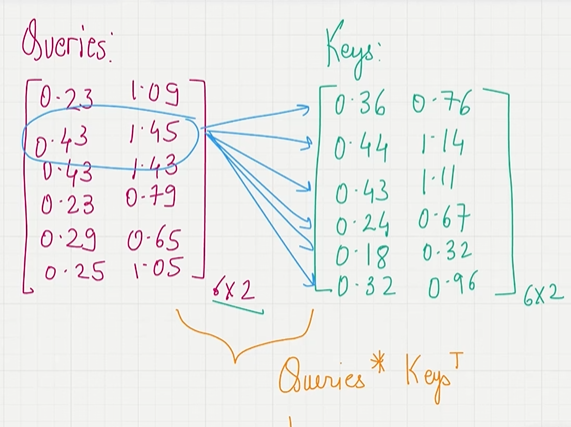 Queries:
Keys:
0.23 1.09
0.43 1.45
0.43 1.43
0.23 0.79
0.29 0.65
0.25 1.05
6x2
0.36 0.76
0.44 1.14
0.43 1.11
0.24 0.67
0.18 0.32
0.32 0.96
6x2
Queries * Keysᵀ